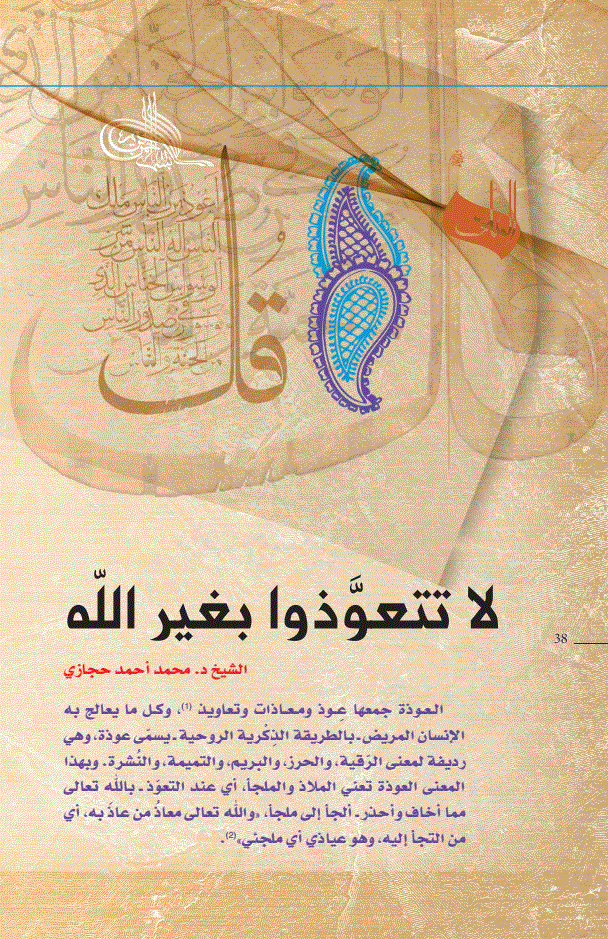 قل
أعوذ برب الناس ملك
الناس إله الناس من شر
الوسواس الخناس الذي
يوسوس في صدور الناس
من الجنة والناس
لا تتعوَّذوا بغير اللّه
38
الشيخ د. محمد أحمد حجازي
العوذة جمعها عِوذ ومعاذات وتعاويذ (1)، وكل ما يعالج به
الإنسان المريض ـ بالطريقة الذِكْرية الروحية ـ يسمّى عوذة، وهي
رديفة لمعنى الرَقية، والحرز، والبريم، والتميمة، والنُشرة. وبهذا
المعنى العوذة تعني الملاذ والملجأ، أي عند التعوّذ ـ بالله تعالى
مما أخاف وأحذر ـ ألجأ إلى ملجأ، «والله تعالى معاذُ من عاذَ به، أي
من التجأ إليه، وهو عياذي أي ملجئي»(2).